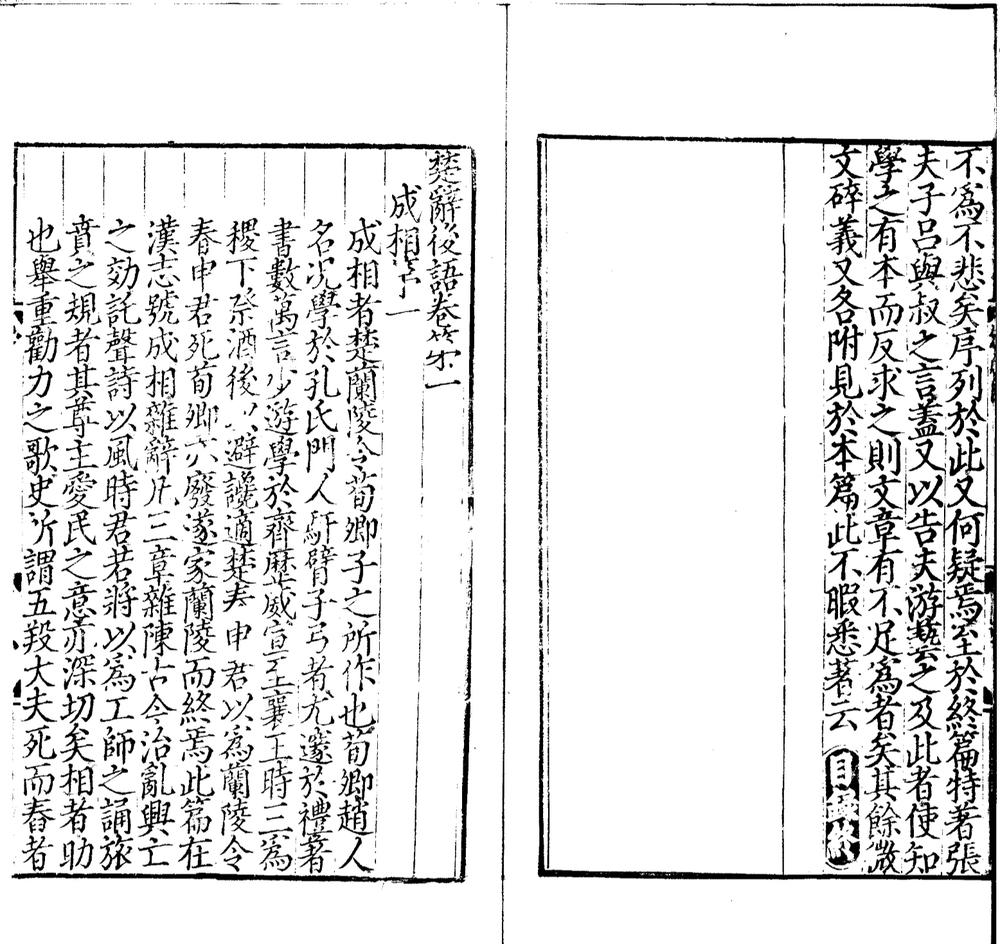 不爲不悲矣序列於此又何疑焉至於終篇特著張
夫子呂與叔之言蓋又以告夫游藝之及此者使知
學之有本而反求之則文章有不足爲者矣其餘微
文碎義又各附見於本篇此不暇悉著云 目錄終
楚辭後語卷第一
成相第一
成相者楚蘭陵令荀卿子之所作也荀卿趙人
名況學於孔氏門人馯臂子弓者尤邃於禮著
書數萬言少遊學於齊歷威宣至襄王時三爲
稷下祭酒後以避讒適楚春申君以爲蘭陵令
春申君死荀卿亦廢遂家蘭陵而終焉此篇在
漢志號成相雜辭凡三章雜陳古今治亂興亡
之効託聲詩以風時君若將以爲工師之誦旅
賁之規者其尊主愛民之意亦深切矣相者助
也舉重勸力之歌史所謂五羖大夫死而舂者